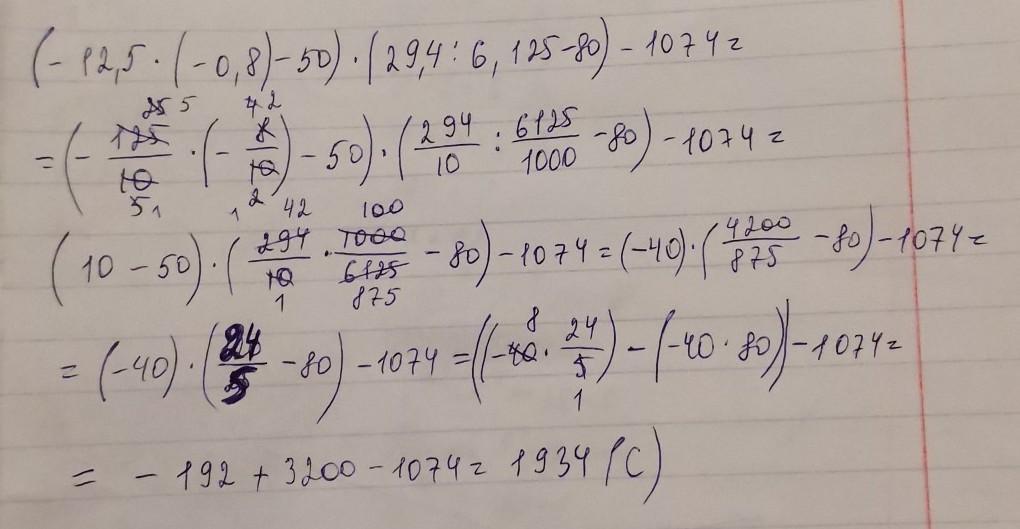 (-12,5·(-0,8)-50)·(29,4:6,125-80)-1074=
25 5 4 2
=(-125/10·(-8/10)-50)·(294/10:6125/1000-80)-1074=
5 1 1 2 42 100
(10-50)·(294/10·1000/6125-80)-1074=(-40)·(4200/875-80)-1074=
1 875
8
=(-40)·(24/5-80)-1074=((-40·24/5)-(-40·80))-1074=
1
=-192+3200-1074=1934(C)